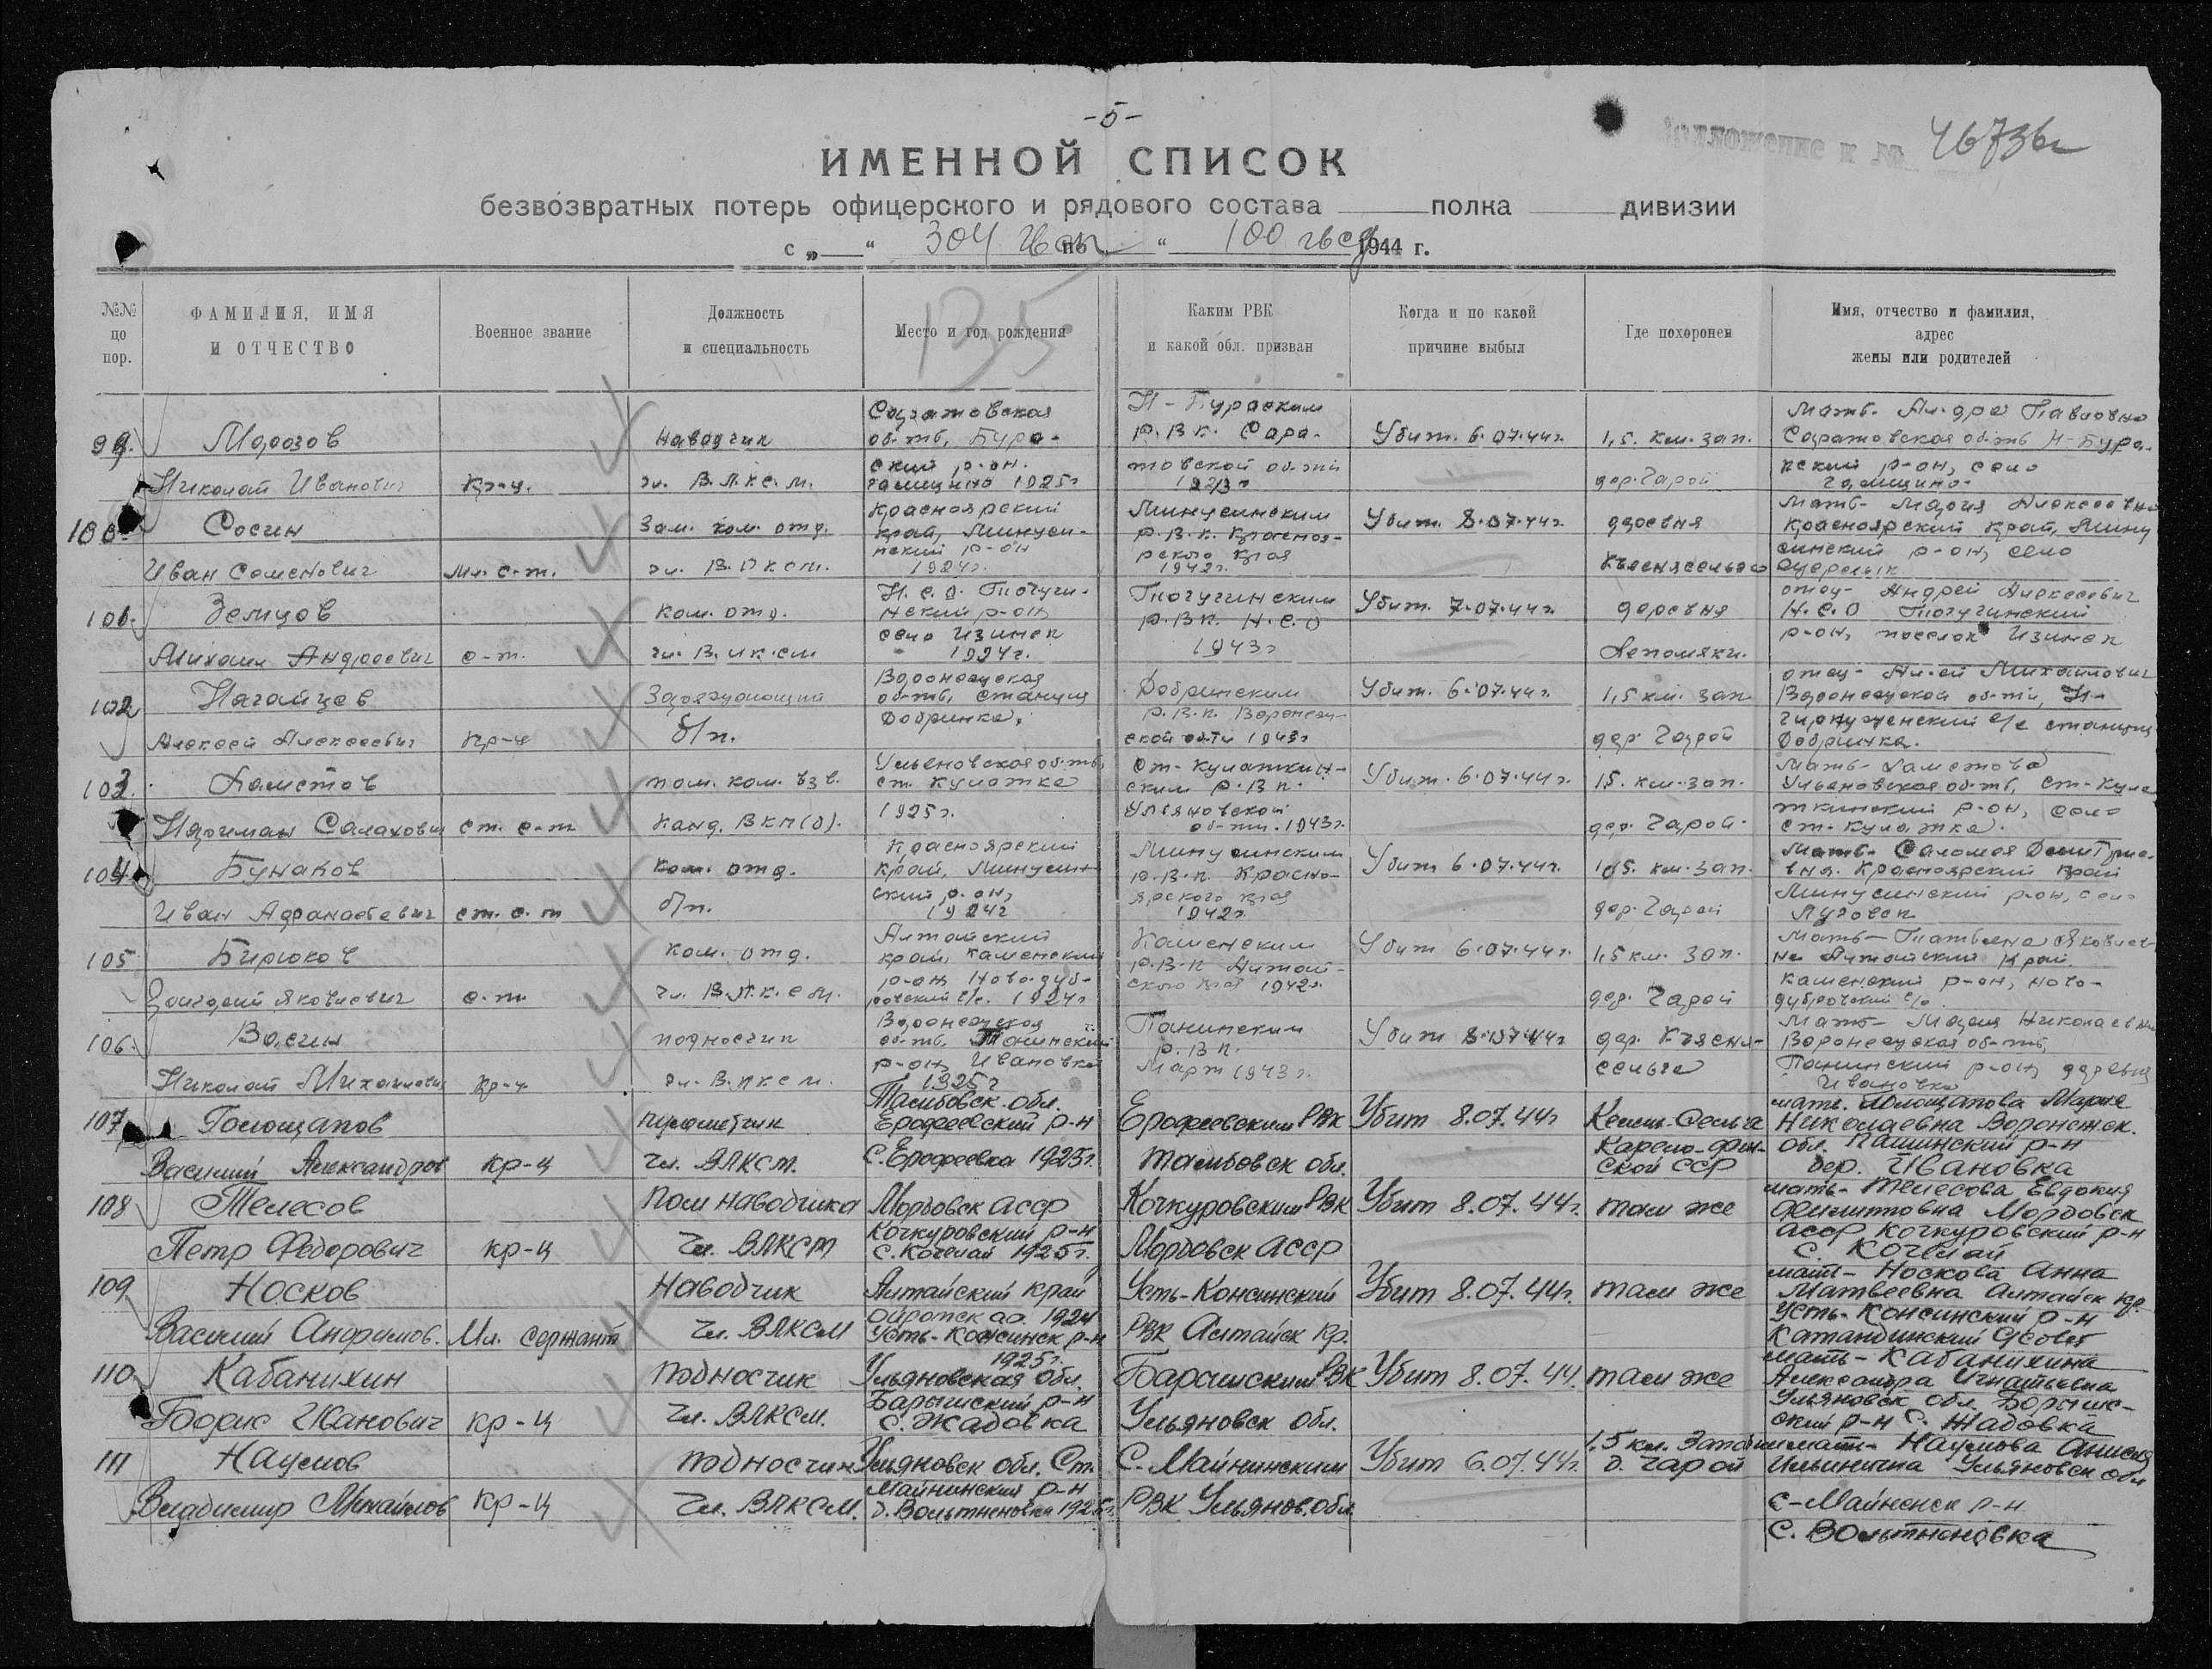 -5-
Приложение к № 46736с
ИМЕННОЙ СПИСОК
безвозвратных потерь офицерского и рядового состава полка дивизии
с „ “ 304 гвсп по “ 100 гвсд 1944 г.
135
№№ по пор.
ФАМИЛИЯ, ИМЯ И ОТЧЕСТВО
Военное звание
Должность и специальность
Место и год рождения
Каким РВК и какой обл. призван
Когда и по какой причине выбыл
Где похоронен
Имя, отчество и фамилия, адрес жены или родителей
99. Морозов
Николай Иванович
кр-ц.
наводчик
чл. В.Л.К.С.М.
Саратовская
об-ть, Бура-
ский р-он.
1925г
Н-Бураским
Р.В.К. Сара-
товской об-ти
1943г
Убит. 6.07.44г.
1,5. км. зап.
дер. Гарой
Мать- Ал-дра Павловна
Саратовская об-ть Н-Бура-
ский р-он, село
100. Сосин
Иван Семенович
мл. с-т.
Зам. ком. отд.
Красноярский
край, Минуси-
нский р-он
1924г.
Минусинским
Р.В.К. Краснoя-
рского края
1942г.
Убит. 8.07.44г.
деревня
Мать- Мария Алексеевна
Красноярский край, Мину
синский р-он, село
101. Земцов
Михаил Андреевич
с-т.
ком. отд.
Н.С.О. Тогучи-
нский р-он,
село Изинск
1924г.
Тогучинским
Р.В.К. Н.С.О
1943г
Убит. 7.07.44г.
деревня
отец- Андрей Алексеевич
Н.С.О Тогучинский
р-он, поселок Изинск
102 Нагайцев
Алексей Алексеевич
кр-ц
Заряжающий
б/п.
Воронежская
об-ть, станция
Добринка.
Добринским
Р.В.К. Воронеж-
ской об-ти 1943г
Убит. 6.07.44г.
1,5 км. зап.
дер. Гарой
отец- Ал-ей Михайлович
Воронежской об-ти, Н-
с/с станция
Добринка.
103.
Салахович
ст. с-т
пом. ком. взв.
Канд. ВКП(б).
Ульяновская об-ть,
ст. Кулатка
1925г.
Ст-Кулаткин-
ским Р.В.К.
Ульяновской
об-ти. 1943г.
Убит. 6.07.44г.
15. км. зап.
дер. Гарой.
Мать-
Ульяновская об-ть, ст-Кула
ткинский р-он, село
ст-Кулатка.
104. Бунаков
Иван Афанасьевич
ст. с-т
ком. отд.
б/п.
Красноярский
край, Минусин-
ский р-он,
1924г
Минусинским
Р.В.К. Красно-
ярского края
1942г.
Убит 6.07.44г.
1,5. км. зап.
дер. Гарой
Мать- Саломея Дмитрие-
вна. Красноярский край
Минусинский р-он, село
105 Бирюков
Григорий Яковлевич
с-т.
ком. отд.
чл. В.Л.К.С.М.
Алтайский
край, Каменский
р-он Ново-дуб-
ровский с/с. 1924г
Каменским
Р.В.К Алтай-
ского края 1942г.
Убит 6.07.44г.
1,5 км. зап.
дер. Гарой
Мать- Татьяна Яковлев-
на Алтайский край.
Каменский р-он, ново-
дубровский с/с.
106. Васин
Николай Михайлович
кр-ц
подносчик
чл. В.Л.К.С.М.
Воронежская
об-ть, Панинский
р-он, Ивановка
1925г
Панинским
Р.В.К.
Март 1943г.
Убит 8.07.44г
Мать- Мария Николаевна
Воронежская об-ть,
Панинский р-он, деревня
Ивановка
107 Голощапов
Василий Александров
кр-ц
пулеметчик
Чл. ВЛКСМ.
Тамбовск. обл.
Ерофеевский р-н
С. Ерофеевка 1925г.
Ерофеевским РВК
Тамбовск обл.
Убит 8.07.44г
Карело-фин-
ской ССР
мать. Голощапова Мария
Николаевна Воронежск.
обл. Панинский р-н
дер. Ивановка
108 Телесов
Петр Федорович
кр-ц
Пом наводчика
Чл. ВЛКСМ
Мордовск АССР
Кочкуровский р-н
с. Кочелай 1925г.
Кочкуровским РВК
Мордовск АССР
Убит 8.07.44г.
там же
мать- Телесова Евдокия
Филиповна Мордовск
АССР Кочкуровский р-н
с. Кочелай
109 Носков
Василий
Мл. Сержант
Наводчик
Чл. ВЛКСМ
Алтайский край
Ойротск ао. 1924
Усть-Коксинск р-н
Усть-Коксинский
РВК Алтайск кр.
Убит 8.07.44г.
там же
мать- Носкова Анна
Матвеевна Алтайск кр.
Усть-Коксинский р-н
Катандинский с/совет
110 Кабанихин
Борис Иванович
кр-ц
подносчик
Чл. ВЛКСМ.
1925г.
Ульяновская обл.
Барышский р-н
с. Жадовка
Барышским РВК
Ульяновск обл.
Убит 8.07.44.
там же
мать- Кабанихина
Александра Игнатьевна
Ульяновск обл. Барыш-
ский р-н с. Жадовка
111 Наумов
Владимир Михайлов
кр-ц
подносчик
Чл. ВЛКСМ.
Ульяновск обл. Ст.
Майнинский р-н
С. Майнинским
РВК Ульянов. обл.
Убит 6.07.44г.
1.5 км. Западн
д. Гарой
мать- Наумова Анисия
Ильинична Ульяновск обл
С-Майнинск р-н